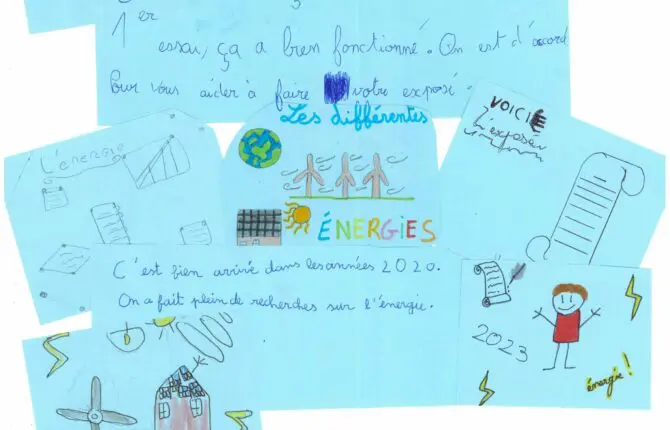 1er
essai, ça a bien fonctionné. On est d'accord
Pour vous aider à faire votre exposé.
Les différentes
ÉNERGIES
VOICIE
L'exposée
L'énergie
C'est bien arrivé dans les années 2020.
On a fait plein de recherches sur l'énergie.
2023
énergie!